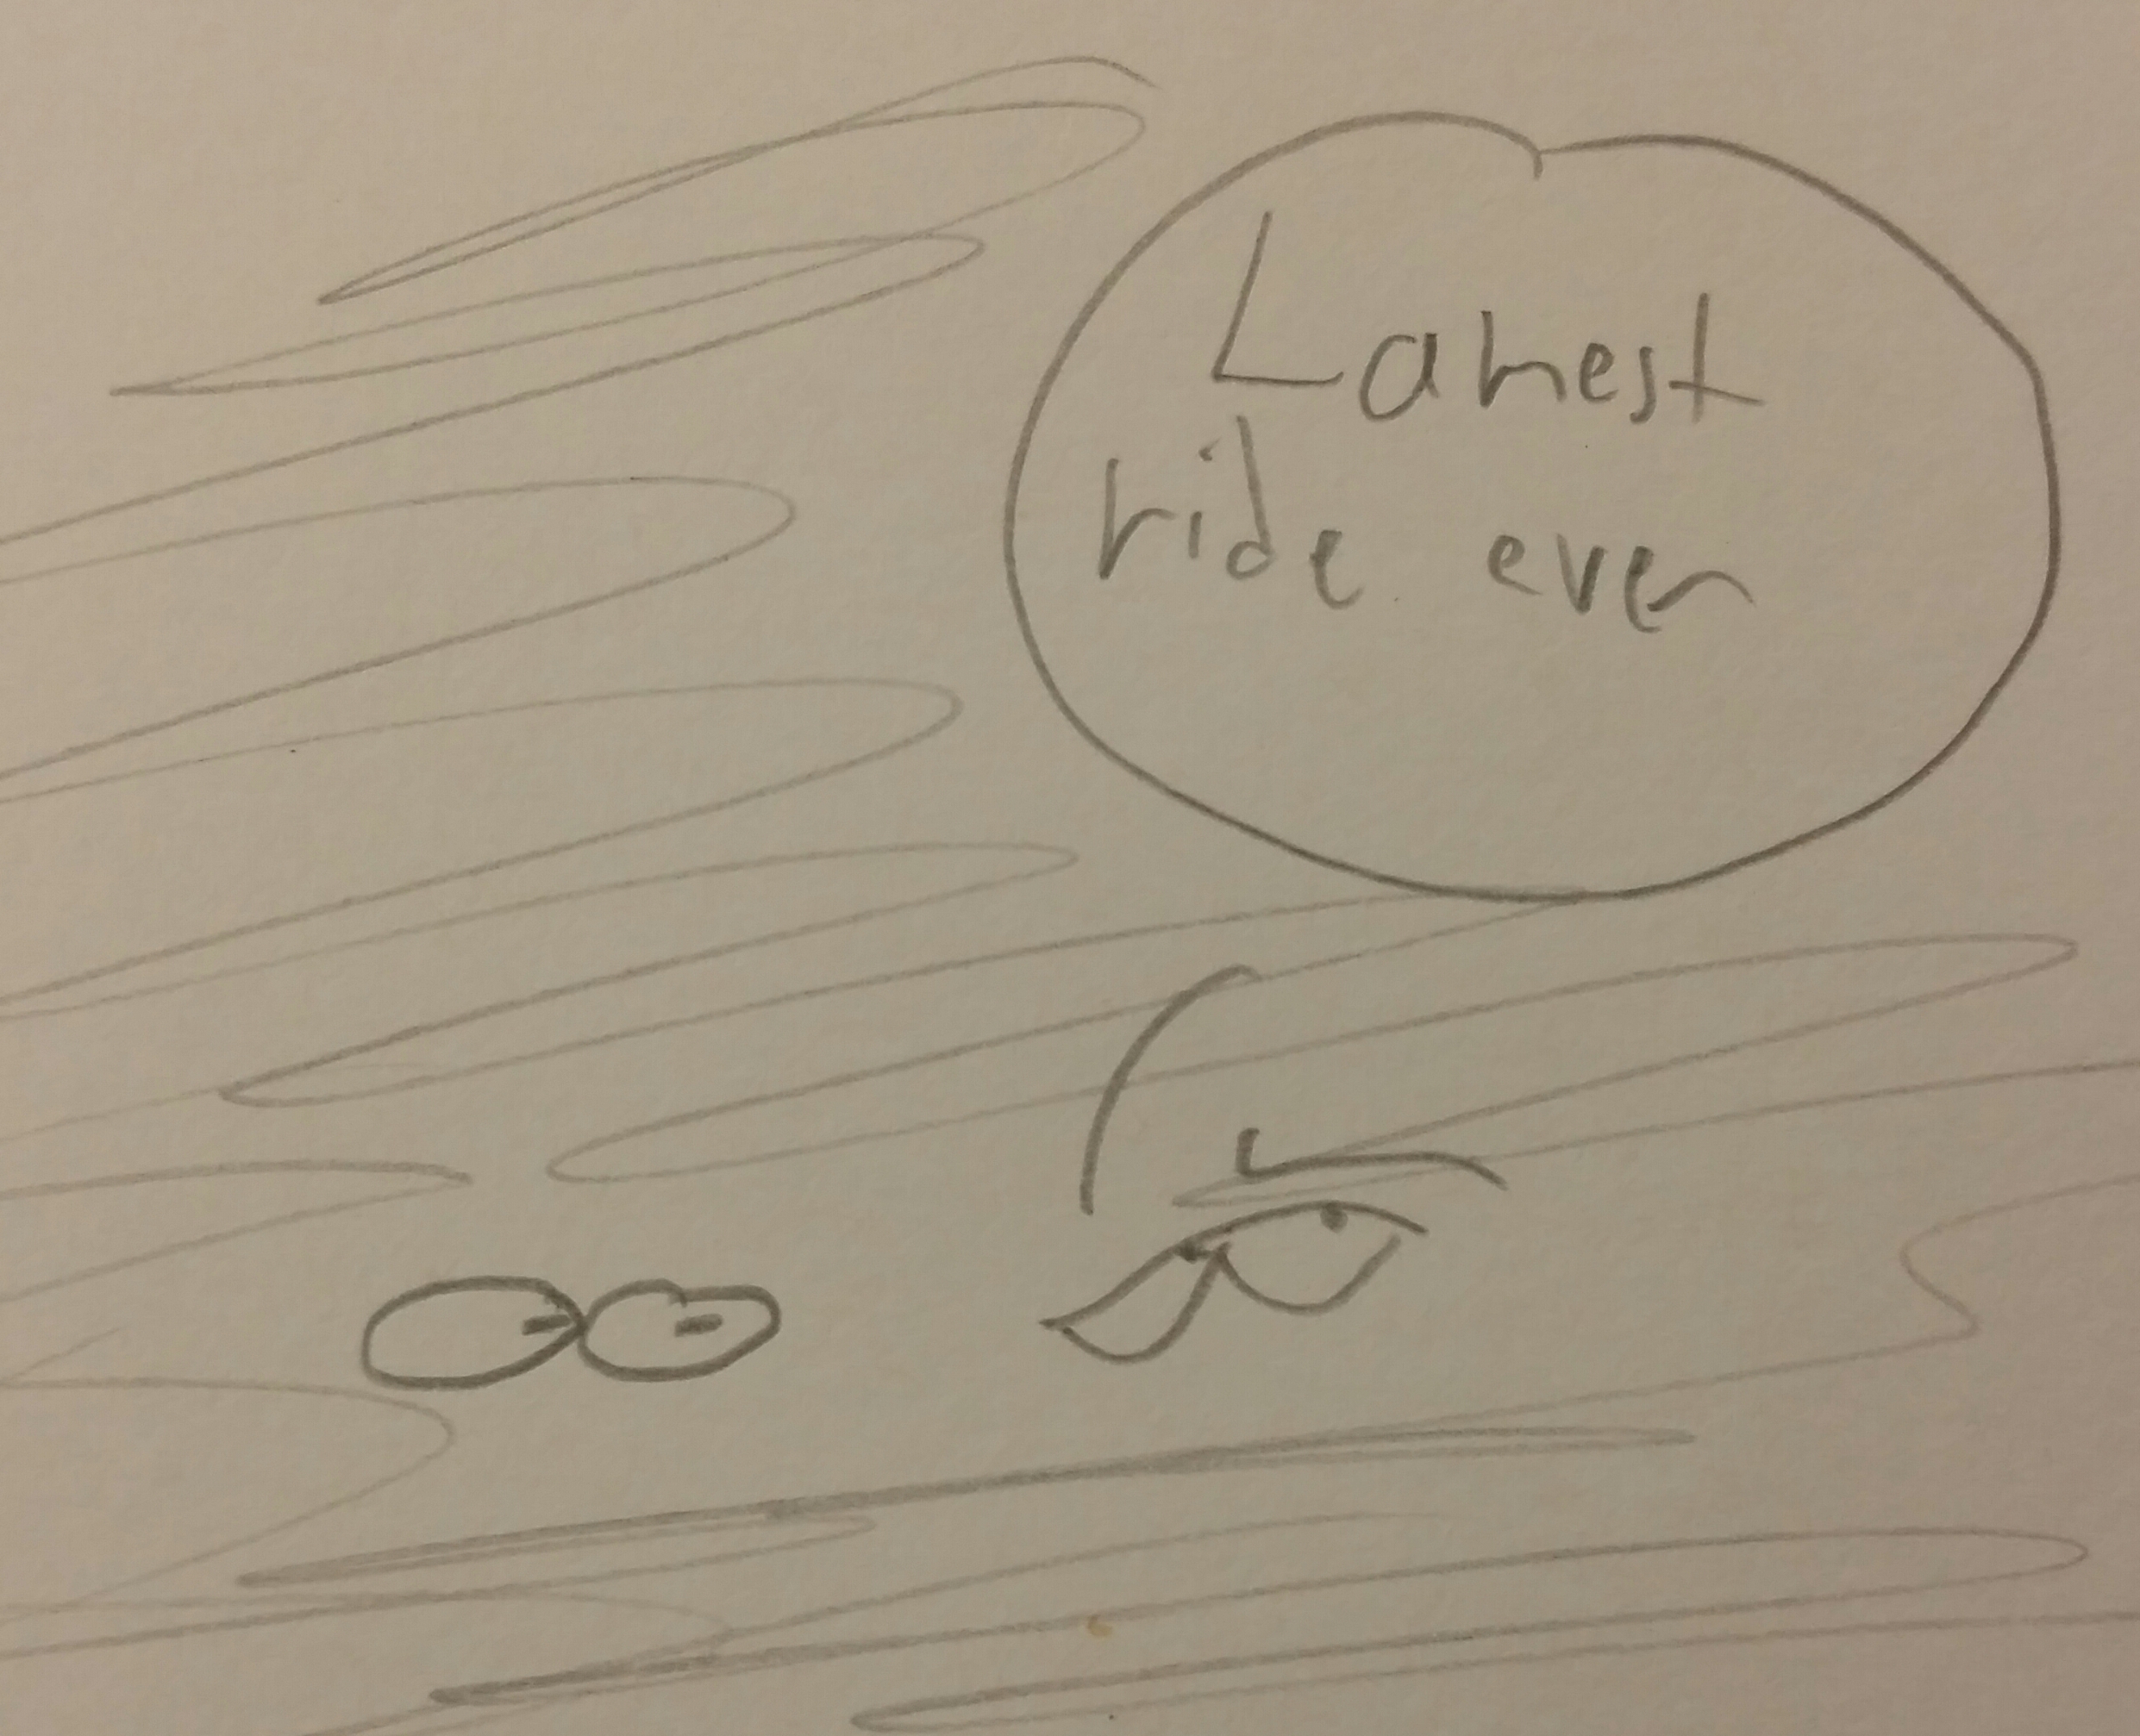 Lamest
ride ever